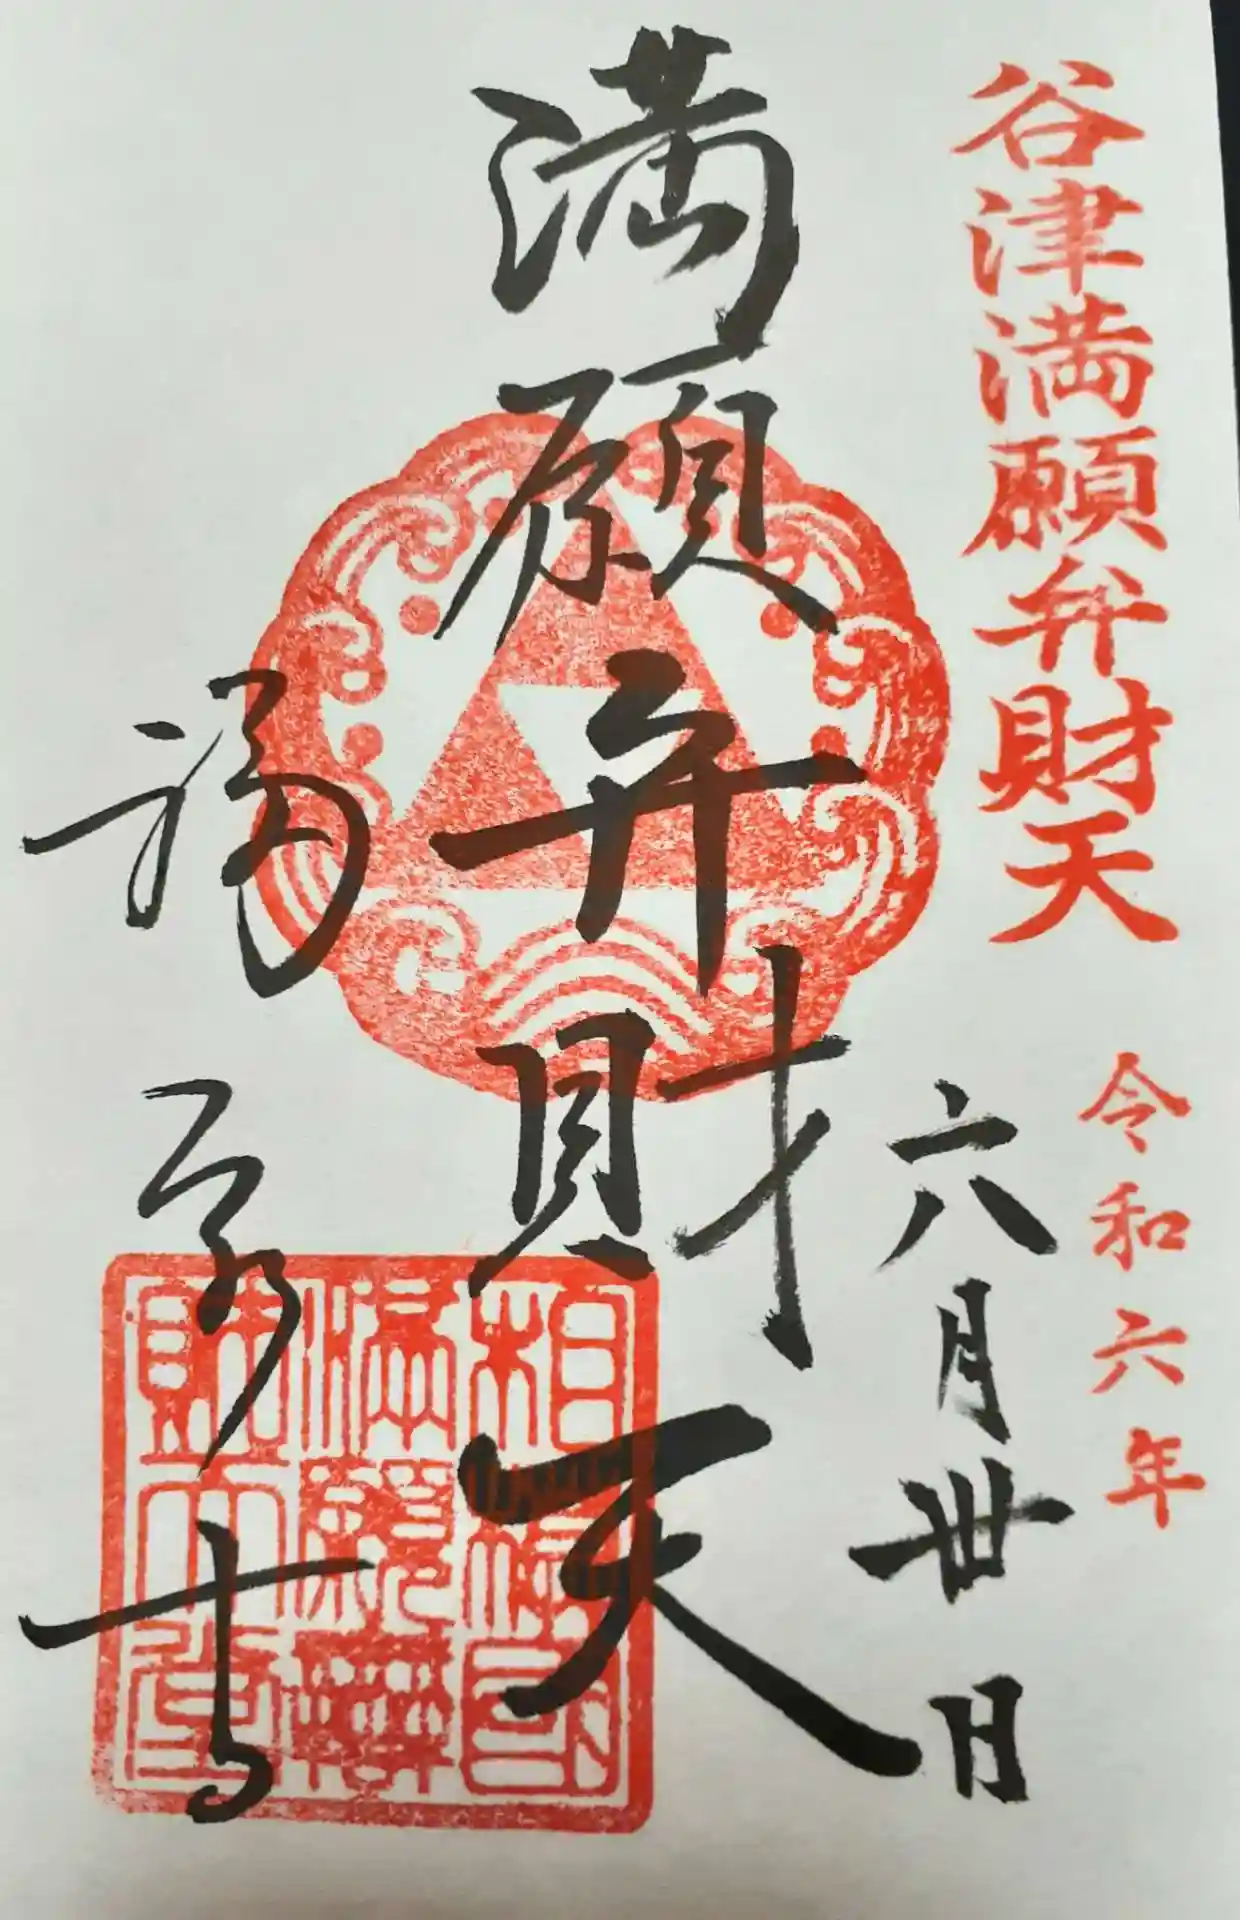 谷津満願弁財天
令和六年
六月丗日
満願弁財天
福泉寺